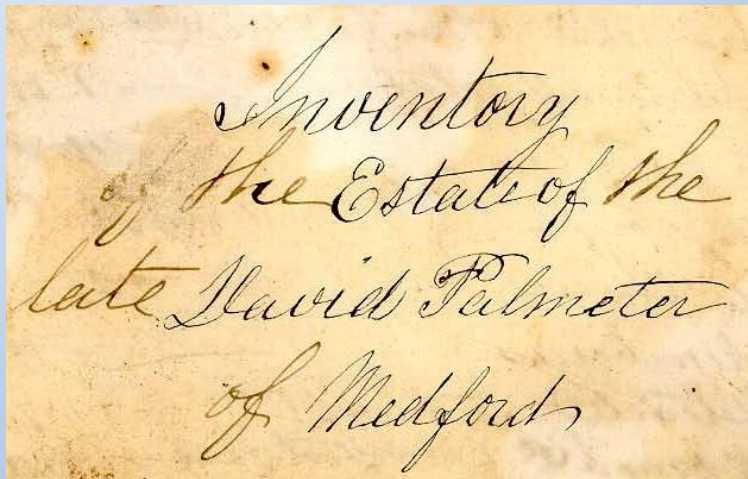 Inventory
of the Estate of the
late David Palmeter
of Medford